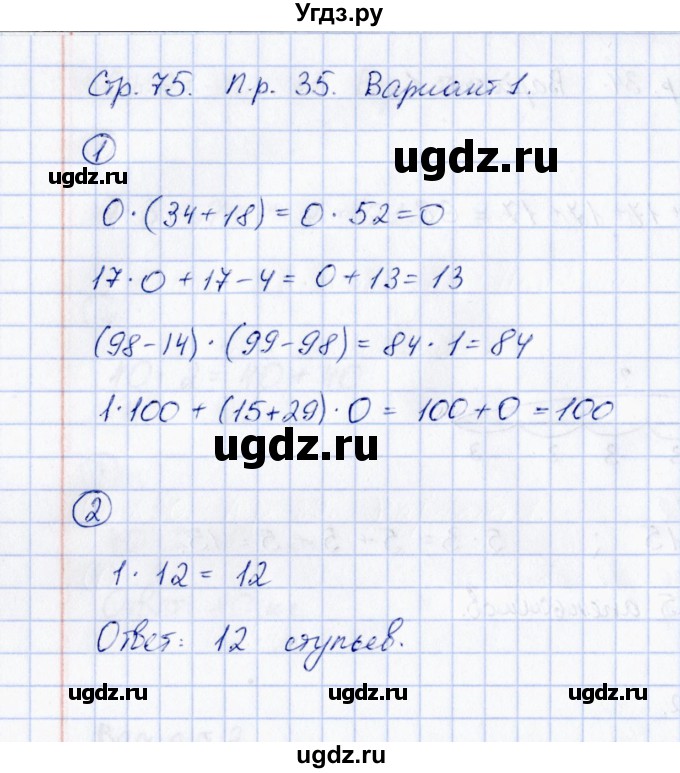 Угдз.ру
Стр. 75. П.р. 35. Вариант 1.
1
ugdz.ru
ugdz.ru
0·(34+18)=0·52=0
17·0+17-4=0+13=13
(98-14)·(99-98)=84·1=84
1·100+(15+29)·0=100+0=100
ugdz.ru
2
1·12=12
Ответ: 12 ступьев.
ugdz.ru ugdz.ru ugdz.ru
ugdz.ru